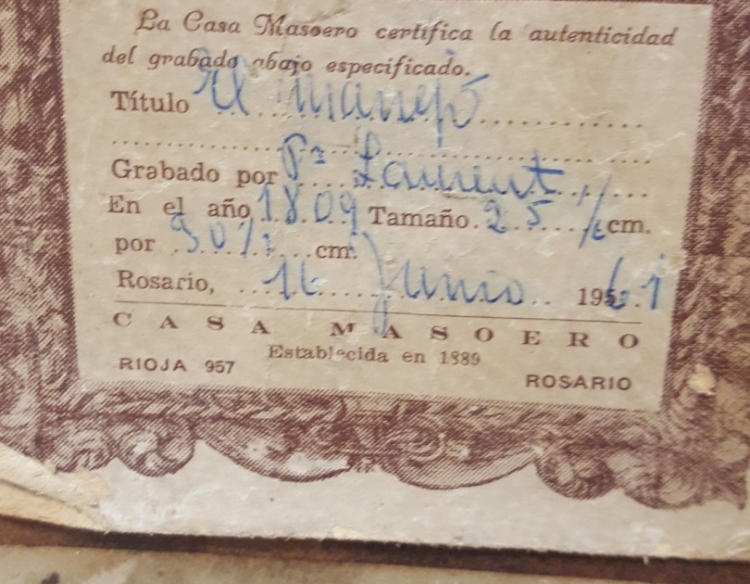 La Casa Masoero certifica la autenticidad
del grabado abajo especificado.
Título El
Grabado por Pe Laurent
En el año 1809 Tamaño 25 cm.
por 30 cm.
Rosario, 16 Junio 1961
CASA MASOERO
Establecida en 1889
RIOJA 957
ROSARIO